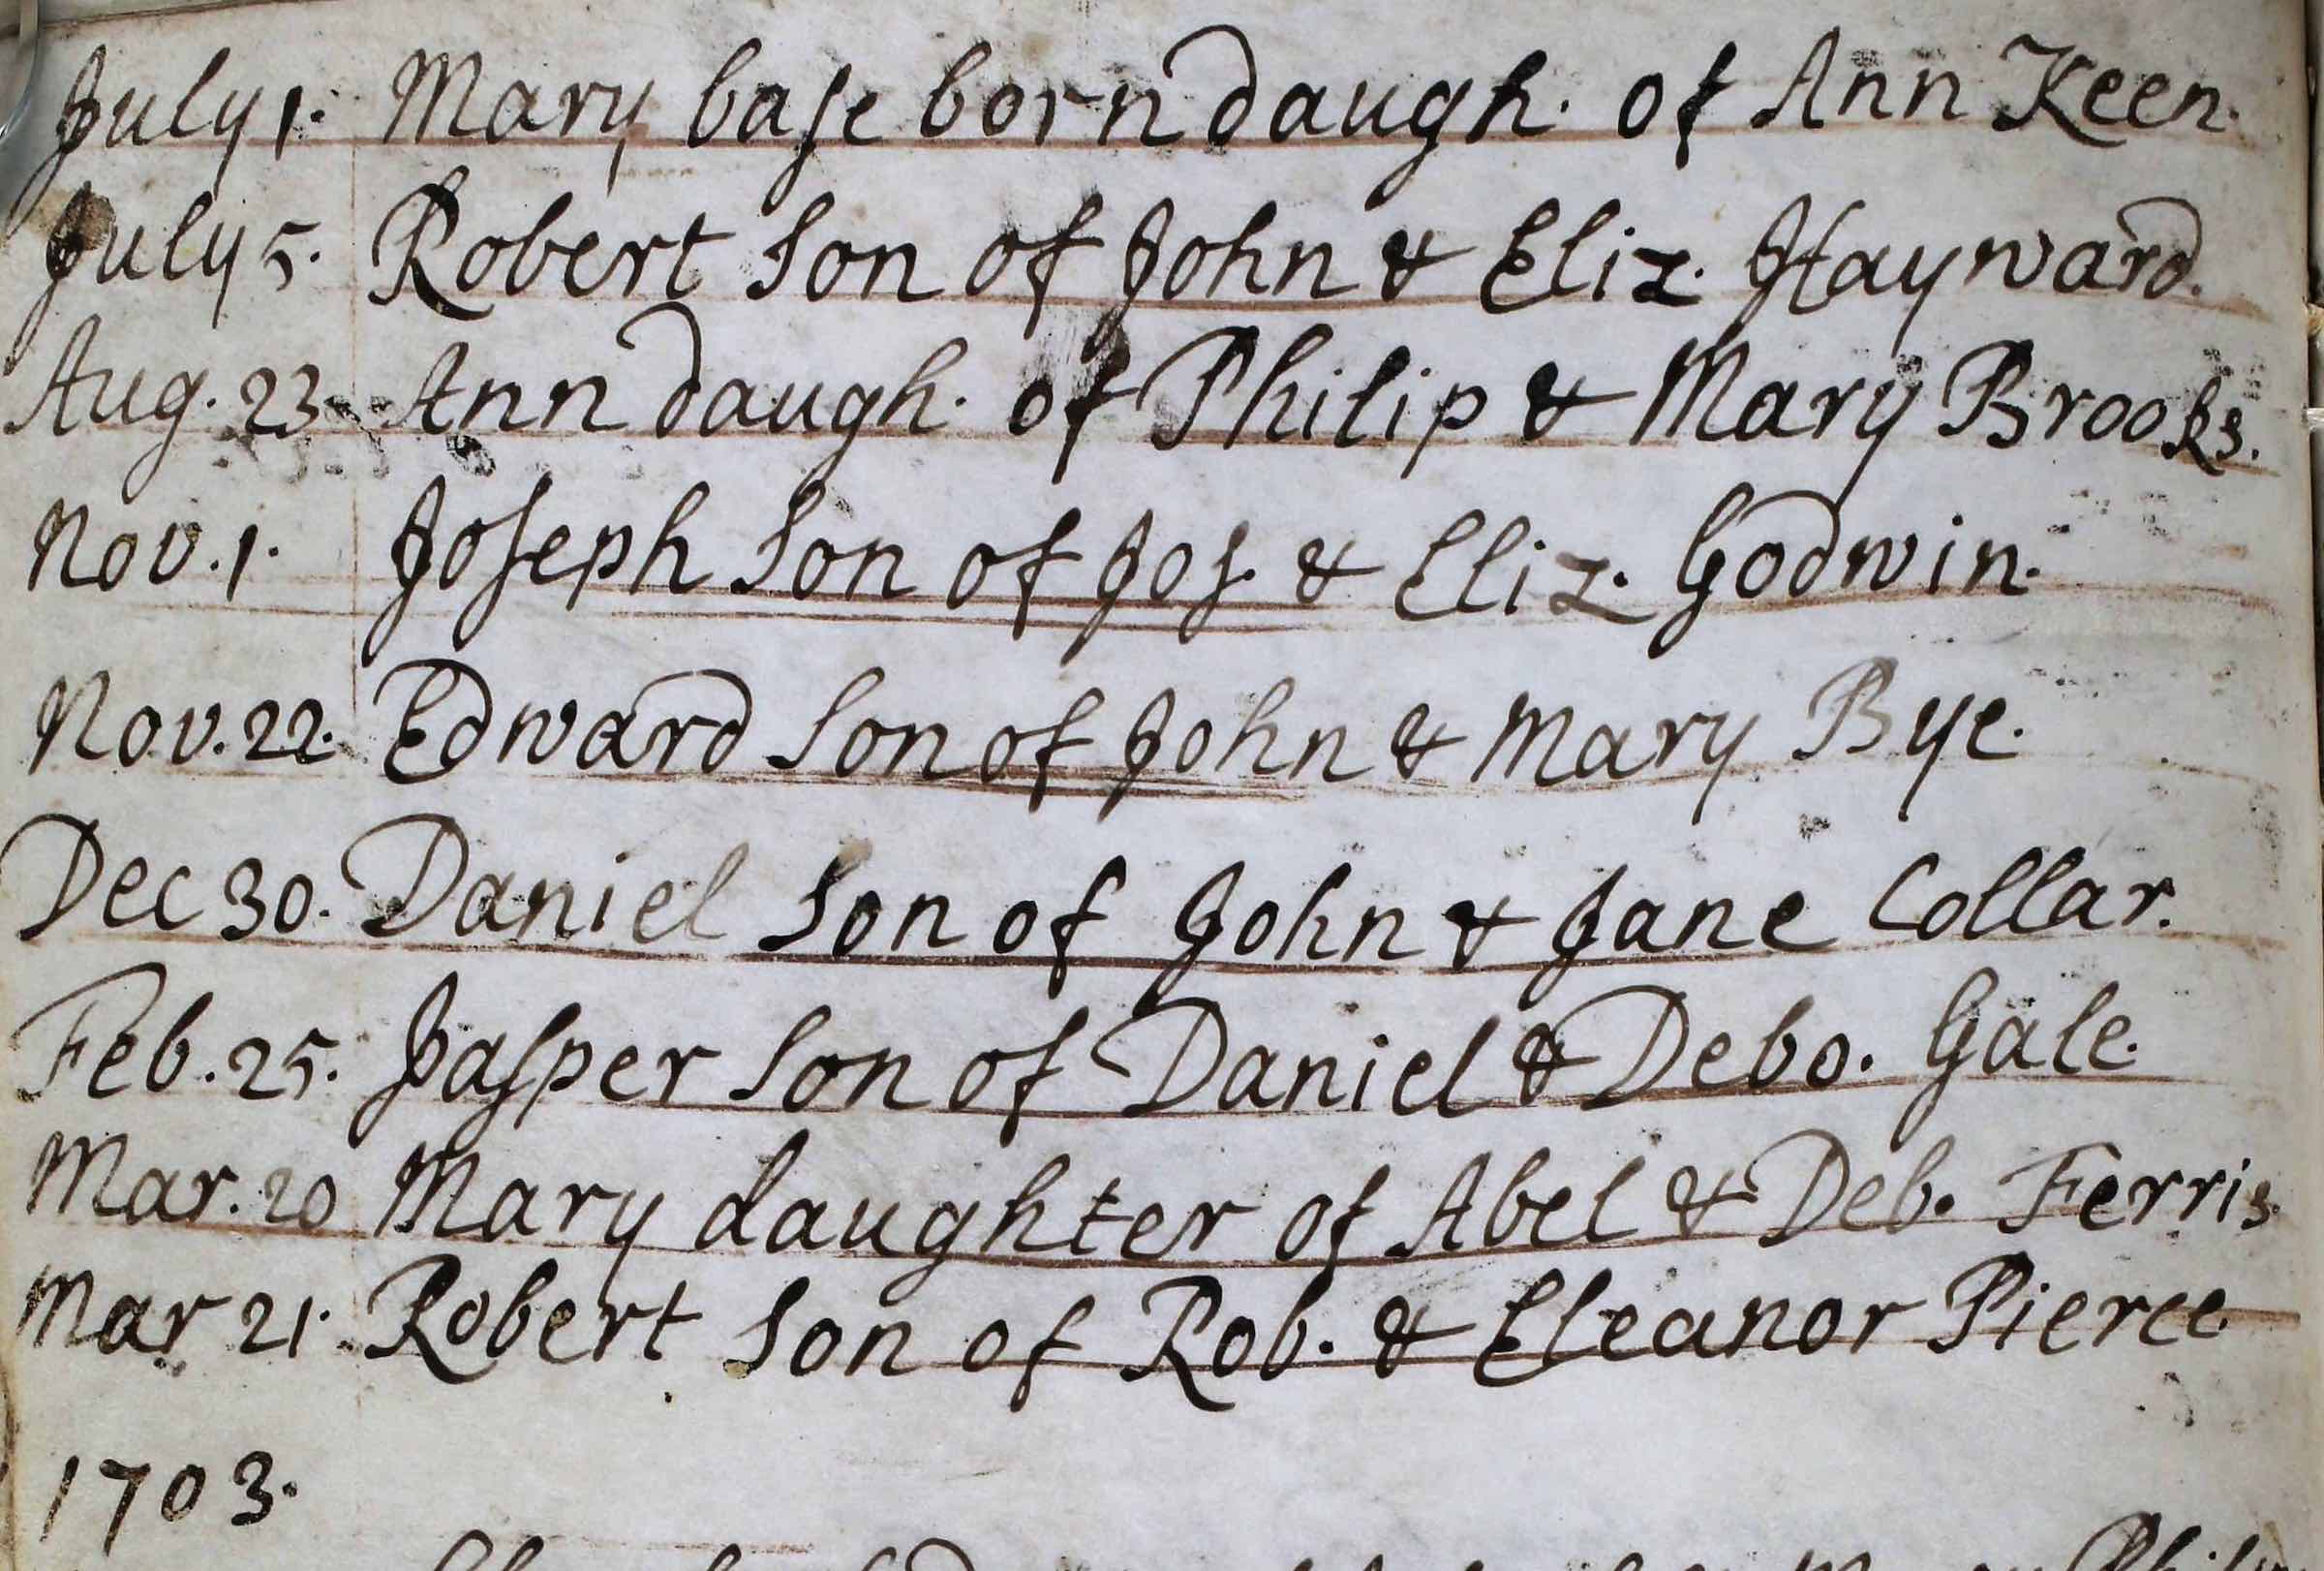 July 1. Mary base born daugh. of Ann Keen.
July 5. Robert Son of John & Eliz. Hayward.
Aug. 23. Ann daugh. of Philip & Mary Brooks.
Nov. 1. Joseph Son of Jos. & Eliz. Godwin.
Nov. 22. Edward Son of John & Mary Bye.
Dec 30. Daniel Son of John & Jane Collar.
Feb. 25. Jasper Son of Daniel & Debo. Gale.
Mar. 20 Mary daughter of Abel & Deb. Ferris.
Mar 21. Robert Son of Rob. & Eleanor Pierce
1703.